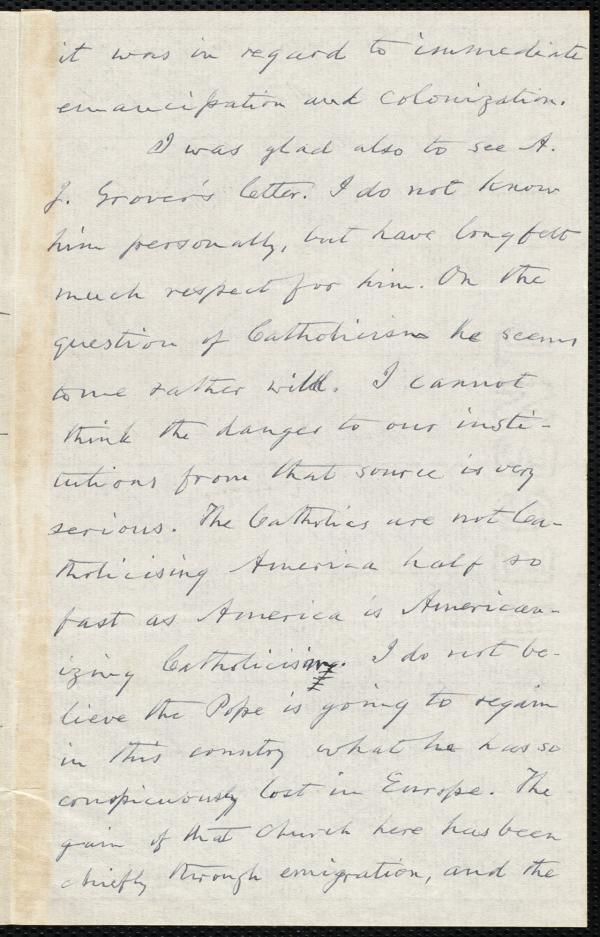 it was in regard to immediate
emancipation and colonization.
I was glad also to see A.
J. Grover's letter. I do not know
him personally, but have long felt
much respect for him. On the
question of Catholicism he seems
to me rather wild. I cannot
think the danger to our insti-
tutions from that source is very
serious. The Catholics are not Ca-
tholicising America half so
fast as America is American-
izing Catholicism. I do not be-
lieve the Pope is going to regain
in this country what he has so
conspicuously lost in Europe. The
gain of that church here has been
chiefly through emigration, and the